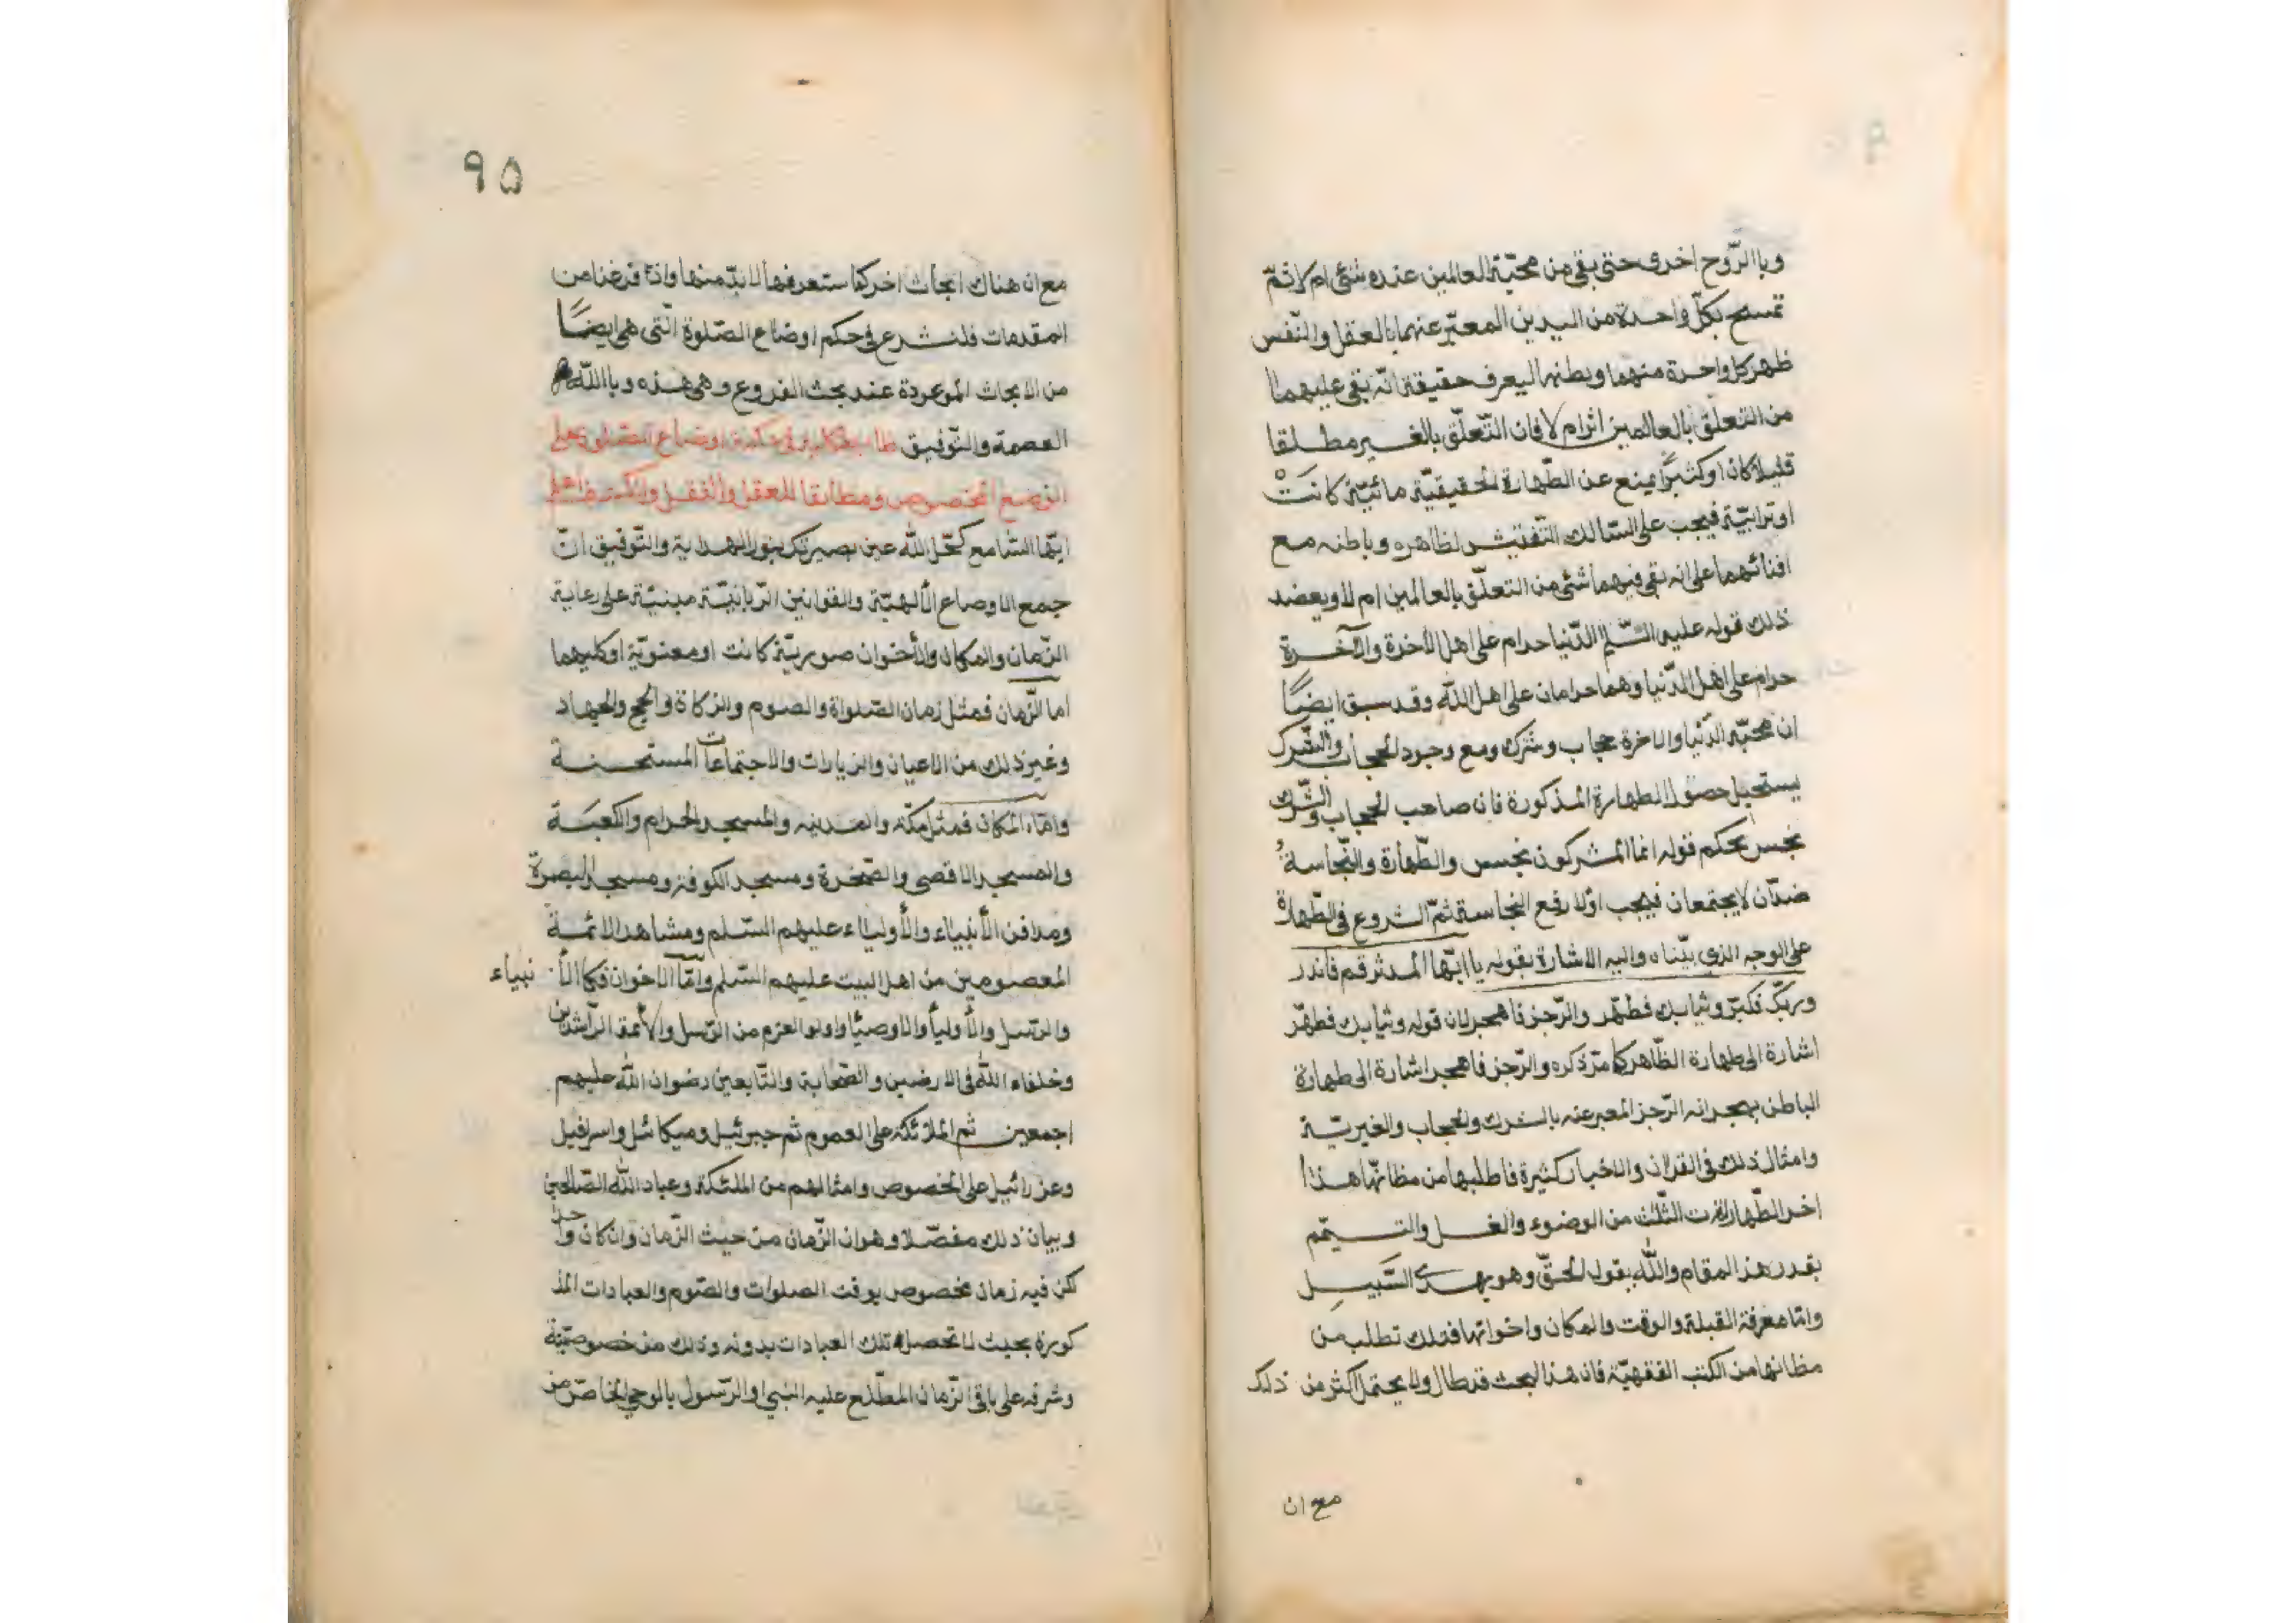 وباالرّوح اخرى حتى بقى من محبّة العالمين عنده شئ ام لا ثمّ
تمسح بكلّ واحدة من اليدين المعبّر عنهما بالعقل والنّفس
ظهر كل واحدة منهما وبطنها ليعرف حقيقة انّه بقى عليهما
من التعلّق بالعالمين اثرام لا فان التّعلّق بالغير مطلقا
قليلا كان او كثيرًا يمنع عن الطّهارة الحقيقيّة مائيّة كانَتْ
اوترابيّة فيجب على السّالك التّفتيش لظاهره وباطنه مع
افنائهما على انه بقى فيهما شئ من التعلّق بالعالمين ام لا ويعضد
ذلك قوله عليه السّلم الدّنيا حرام على اهل الأخرة والآخرة
حرام على اهل الدّنيا وهما حرامان على اهل الله وقد سبق ايضًا
ان محبّة الدّنيا والاخرة حجاب وشرك ومع وجود الحجاب والشّرك
يستحيل حصول الطهارة المذكورة فان صاحب الحجاب والشّرك
نجس بحكم قوله انما المشركون نجس والطّهارة والنّجاسةُ
ضدّان لا يجتمعان فيجب اوّلا رفع النجاسة ثمّ الشروع فى الطّهارة
على الوجه الذي بيّناه واليه الاشارة بقوله يا ايّها المدثر قم فانذر
وربّك فكبّر وثيابك فطهّر والرّجز فاهجر لان قوله وثيابك فطهّر
اشارة الى طهارة الظّاهر كما مرّ ذكره والرّجز فاهجر اشارة الى طهارة
الباطن بهجرانه الرّجز المعبر عنه بالشرك والحجاب والغيريّة
وامثال ذلك فى القران والاخبار كثيرة فاطلبها من مظانّها هذا
اخر الطّهارات الثّلث من الوضوء والغسل والتيمّم
بقدر هذ المقام والله يقول الحقّ وهو يهدى السَّبيل
وامّا معرفة القبلة والوقت والمكان واخواتها فتلك تطلب من
مظانها من الكتب الفقهيّة فان هذ البحث قد طال ولا يحتمل اكثر من ذلك
مع ان
٩٥
مع ان هناك ابحاث اخر كما ستعرفها لا بدّ منها واذا فرغنا من
المقدمات فلنشرع فى حكم اوضاع الصّلوة الّتى هى ايضًا
من الابحاث الموعودة عند بحث الفروع وهى هذه وباالله
العصمة والتّوفيق اوضاع الصّلوة على
الوضع المخصوص ومطابقا للعقل والنقل والكشف اعلم
ايّها السّامع كحّل الله عين بصيرتك بنور الهداية والتّوفيق انّ
جمع الاوضاع الألهيّة والقوانين الرّبانيّة مبنيّة على رعاية
الزّمان والمكان والأخوان صوريّة كانت او معنويّة او كليهما
اما الزّمان فمثل زمان الصّلواة والصّوم والزكاة والحج والجهاد
وغير ذلك من الاعيان والزيارات والاجتماعات المستحسنة
وامّا المكان فمثل مكّة والمدينه والمسجد الحرام والكعبَة
والمسجد الاقصى والصّخرة ومسجد الكوفة ومسجد البصرة
ومدافن الأنبياء والأولياء عليهم السّلم ومشاهد الائمة
المعصومين من اهل البيت عليهم السّلم وامّا الاخوان فكالأ نبياء
والرّسل والأولياء والاوصيا واولو العزم من الرّسل والأئمة الرّاشدين
وخلفاء الله فى الارضين والصّحابة والتّابعين رضوان الله عليهم
اجمعين ثم الملائكة على العموم ثم جبرئيل وميكائل واسرافيل
وعزرائيل على الخصوص وامثالهم من الملئكة وعباد الله الصّالحين
وبيان ذلك مفصّلا وهو ان الزّمان من حيث الزّمان وان كان واحدا
لكن فيه زمان مخصوص بوقت الصلوات والصّوم والعبادات المذ
كورة بحيث لا تحصل تلك العبادات بدونه وذلك من خصوصيّة
وشرفه على باقى الزّمان المطّلع عليه النبي والرّسول بالوحي الخاصّ من